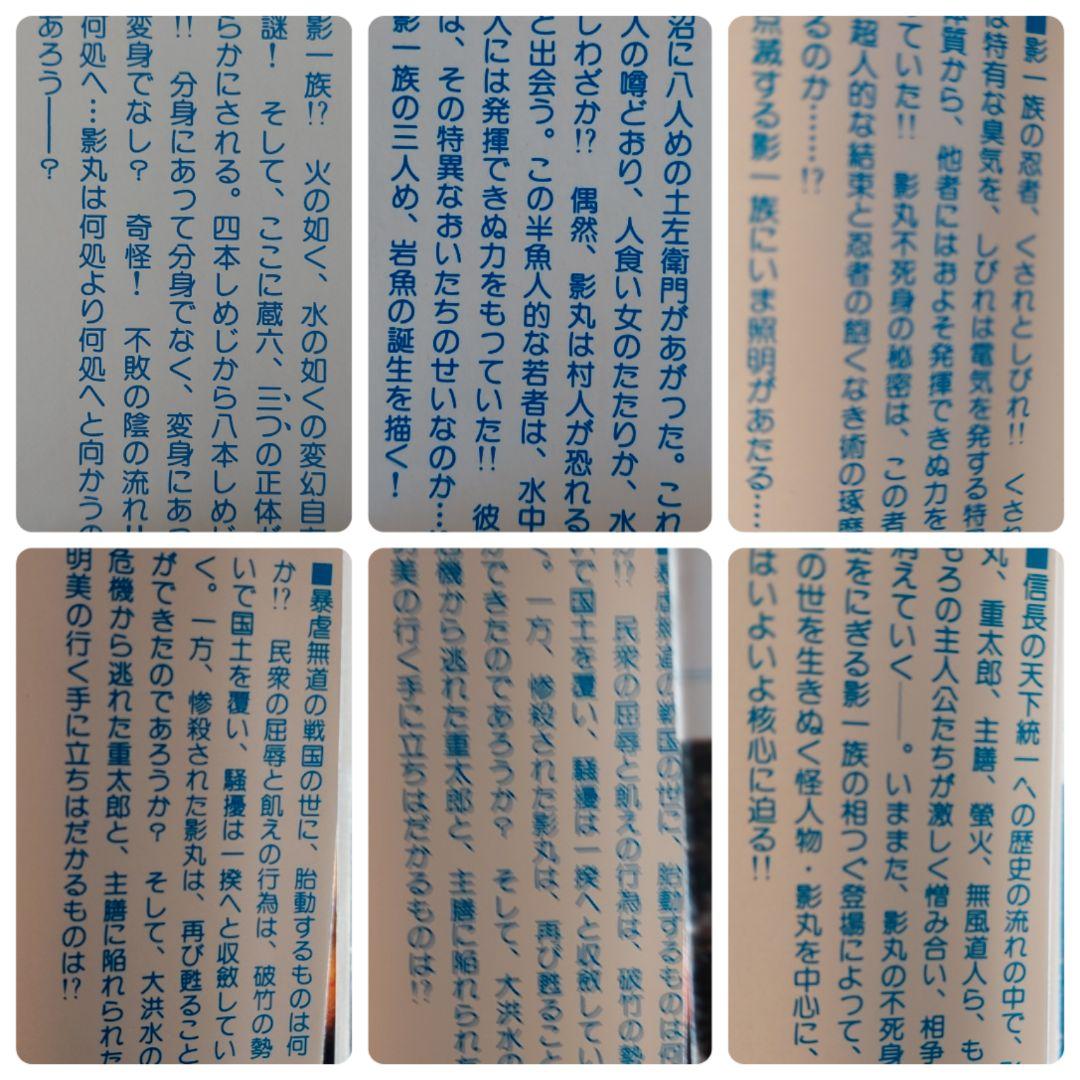 影一族!?　火の如く、水の如くの変幻自
謎！　そして、ここに蔵六、三つの正体が
らかにされる。四本しめじから八本しめじ
!!　分身にあって分身でなく、変身にあっ
変身でなし？　奇怪！　不敗の陰の流れ!!
何処へ…影丸は何処より何処へと向かうの
あろう――？
沼に八人めの土左衛門があがつた。これ
人の噂どおり、人食い女のたたりか、水
しわざか!?　偶然、影丸は村人が恐れる
と出会う。この半魚人的な若者は、水中
人には発揮できぬ力をもつていた!!　彼
は、その特異なおいたちのせいなのか…
影一族の三人め、岩魚の誕生を描く！
■影一族の忍者、くされとしびれ!!　くされ
は特有な臭気を、しびれは電気を発する特
体質から、他者にはおよそ発揮できぬ力を
っていた!!　影丸不死身の秘密は、この者
超人的な結束と忍者の飽くなき術の琢磨
るのか……!?
点滅する影一族にいま照明があたる……
■暴虐無道の戦国の世に、胎動するものは何
か!?　民衆の屈辱と飢えの行為は、破竹の勢
いで国土を覆い、騒擾は一揆へと収斂してい
く。一方、惨殺された影丸は、再び甦ること
ができたのであろうか？　そして、大洪水の
危機から逃れた重太郎と、主膳に陥れられた
明美の行く手に立ちはだかるものは!?
暴虐無道の戦国の世に、胎動するものは何
!?　民衆の屈辱と飢えの行為は、破竹の勢
で国土を覆い、騒擾は一揆へと収斂してい
。一方、惨殺された影丸は、再び甦ること
できたのであろうか？　そして、大洪水の
機から逃れた重太郎と、主膳に陥れられた
美の行く手に立ちはだかるものは!?
■信長の天下統一への歴史の流れの中で、
丸、重太郎、主膳、螢火、無風道人ら、も
もろの主人公たちが激しく憎み合い、相争
消えていく――。いままた、影丸の不死身
をにぎる影一族の相つぐ登場によって、
の世を生きぬく怪人物・影丸を中心に、
はいよいよ核心に迫る!!